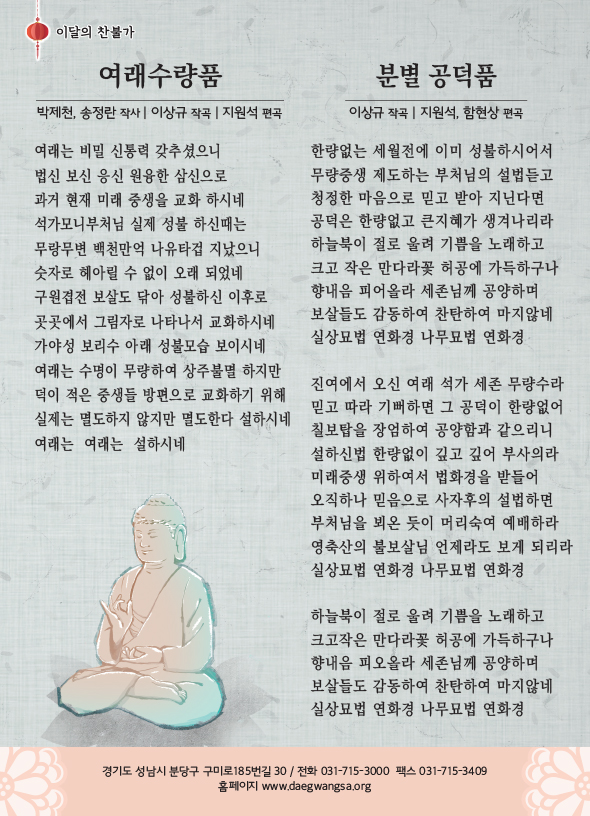 이달의 찬불가
여래수량품
박제천, 송정란 작사 | 이상규 작곡 | 지원석 편곡
여래는 비밀 신통력 갖추셨으니
법신 보신 응신 원융한 삼신으로
과거 현재 미래 중생을 교화 하시네
석가모니부처님 실제 성불 하신때는
무량무변 백천만억 나유타겁 지났으니
숫자로 헤아릴 수 없이 오래 되었네
구원겁전 보살도 닦아 성불하신 이후로
곳곳에서 그림자로 나타나서 교화하시네
가야성 보리수 아래 성불모습 보이시네
여래는 수명이 무량하여 상주불멸 하지만
덕이 적은 중생들 방편으로 교화하기 위해
실제는 멸도하지 않지만 멸도한다 설하시네
여래는 여래는 설하시네
분별 공덕품
이상규 작곡 | 지원석, 함현상 편곡
한량없는 세월전에 이미 성불하시어서
무량중생 제도하는 부처님의 설법듣고
청정한 마음으로 믿고 받아 지닌다면
공덕은 한량없고 큰지혜가 생겨나리라
하늘북이 절로 울려 기쁨을 노래하고
크고 작은 만다라꽃 허공에 가득하구나
향내음 피어올라 세존님께 공양하며
보살들도 감동하여 찬탄하여 마지않네
실상묘법 연화경 나무묘법 연화경
진여에서 오신 여래 석가 세존 무량수라
믿고 따라 기뻐하면 그 공덕이 한량없어
칠보탑을 장엄하여 공양함과 같으리니
설하신법 한량없이 깊고 깊어 부사의라
미래중생 위하여서 법화경을 받들어
오직하나 믿음으로 사자후의 설법하면
부처님을 뵈온 듯이 머리숙여 예배하라
영축산의 불보살님 언제라도 보게 되리라
실상묘법 연화경 나무묘법 연화경
하늘북이 절로 울려 기쁨을 노래하고
크고작은 만다라꽃 허공에 가득하구나
향내음 피오올라 세존님께 공양하며
보살들도 감동하여 찬탄하여 마지않네
실상묘법 연화경 나무묘법 연화경
경기도 성남시 분당구 구미로185번길 30 / 전화 031-715-3000 팩스 031-715-3409
홈페이지 www.daegwangsa.org